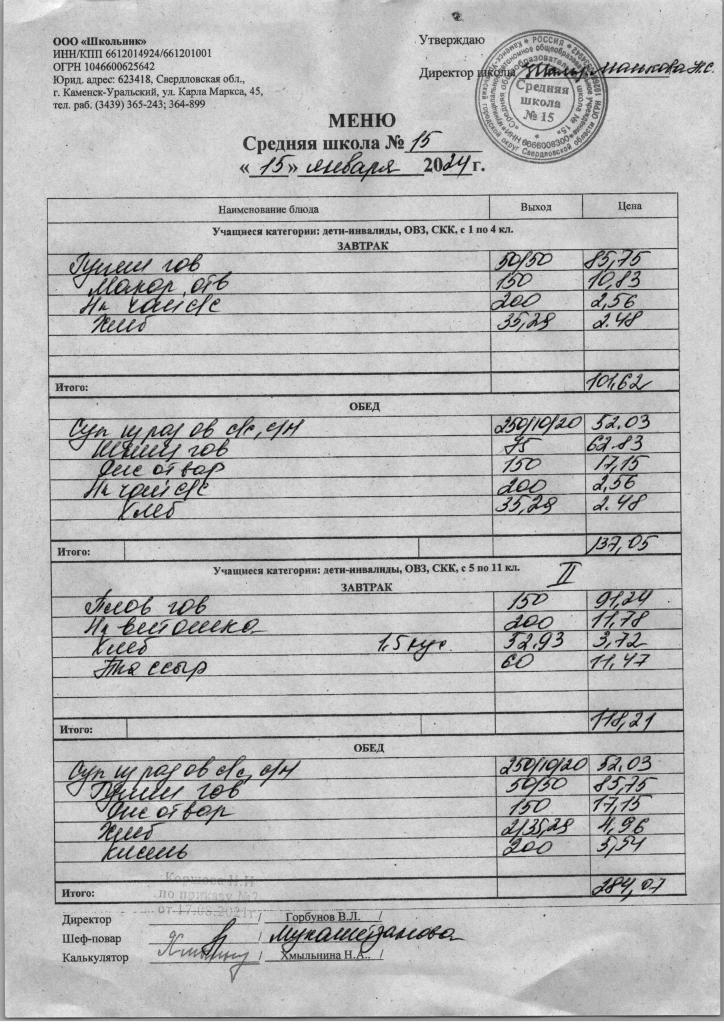 ООО «Школьник»
ИНН/КПП 6612014924/661201001
ОГРН 1046600625642
Юрид. адрес: 623418, Свердловская обл.,
г. Каменск-Уральский, ул. Карла Маркса, 45,
тел. раб. (3439) 365-243; 364-899
Утверждаю
Директор школы
Средняя
школа
№ 15
МЕНЮ
Средняя школа № 15
« 15 » января 2024 г.
Наименование блюда Выход Цена
Учащиеся категории: дети-инвалиды, ОВЗ, СКК, с 1 по 4 кл.
ЗАВТРАК
Гуляш гов 50/50 85,75
Макар отв 150 10,83
Нп чай с/с 200 2,56
Хлеб 35,28 2.48
Итого: 101,62
ОБЕД
Суп из ов с/с, с/н 250/10/20 52.03
гов 75 62.83
Рис отвар 150 17,15
Нп чай с/с 200 2,56
Хлеб 35,28 2.48
Итого: 137,05
Учащиеся категории: дети-инвалиды, ОВЗ, СКК, с 5 по 11 кл. II
ЗАВТРАК
Плов гов 150 91,24
Нп витошка 200 11,78
Хлеб 1,5 кус 52,93 3,72
сыр 60 11,47
Итого: 118,21
ОБЕД
Суп из ов с/с, с/н 250/10/20 52.03
Гуляш гов 50/50 85,75
Рис отвар 150 17,15
Хлеб 2/35,28 4,96
Кисель 200
Итого:
Коржова Н.Н
по приказу №2
Директор / Горбунов В.Л. /
Шеф-повар / Мухаметзянова
Калькулятор / Хмыльнина Н.А.. /